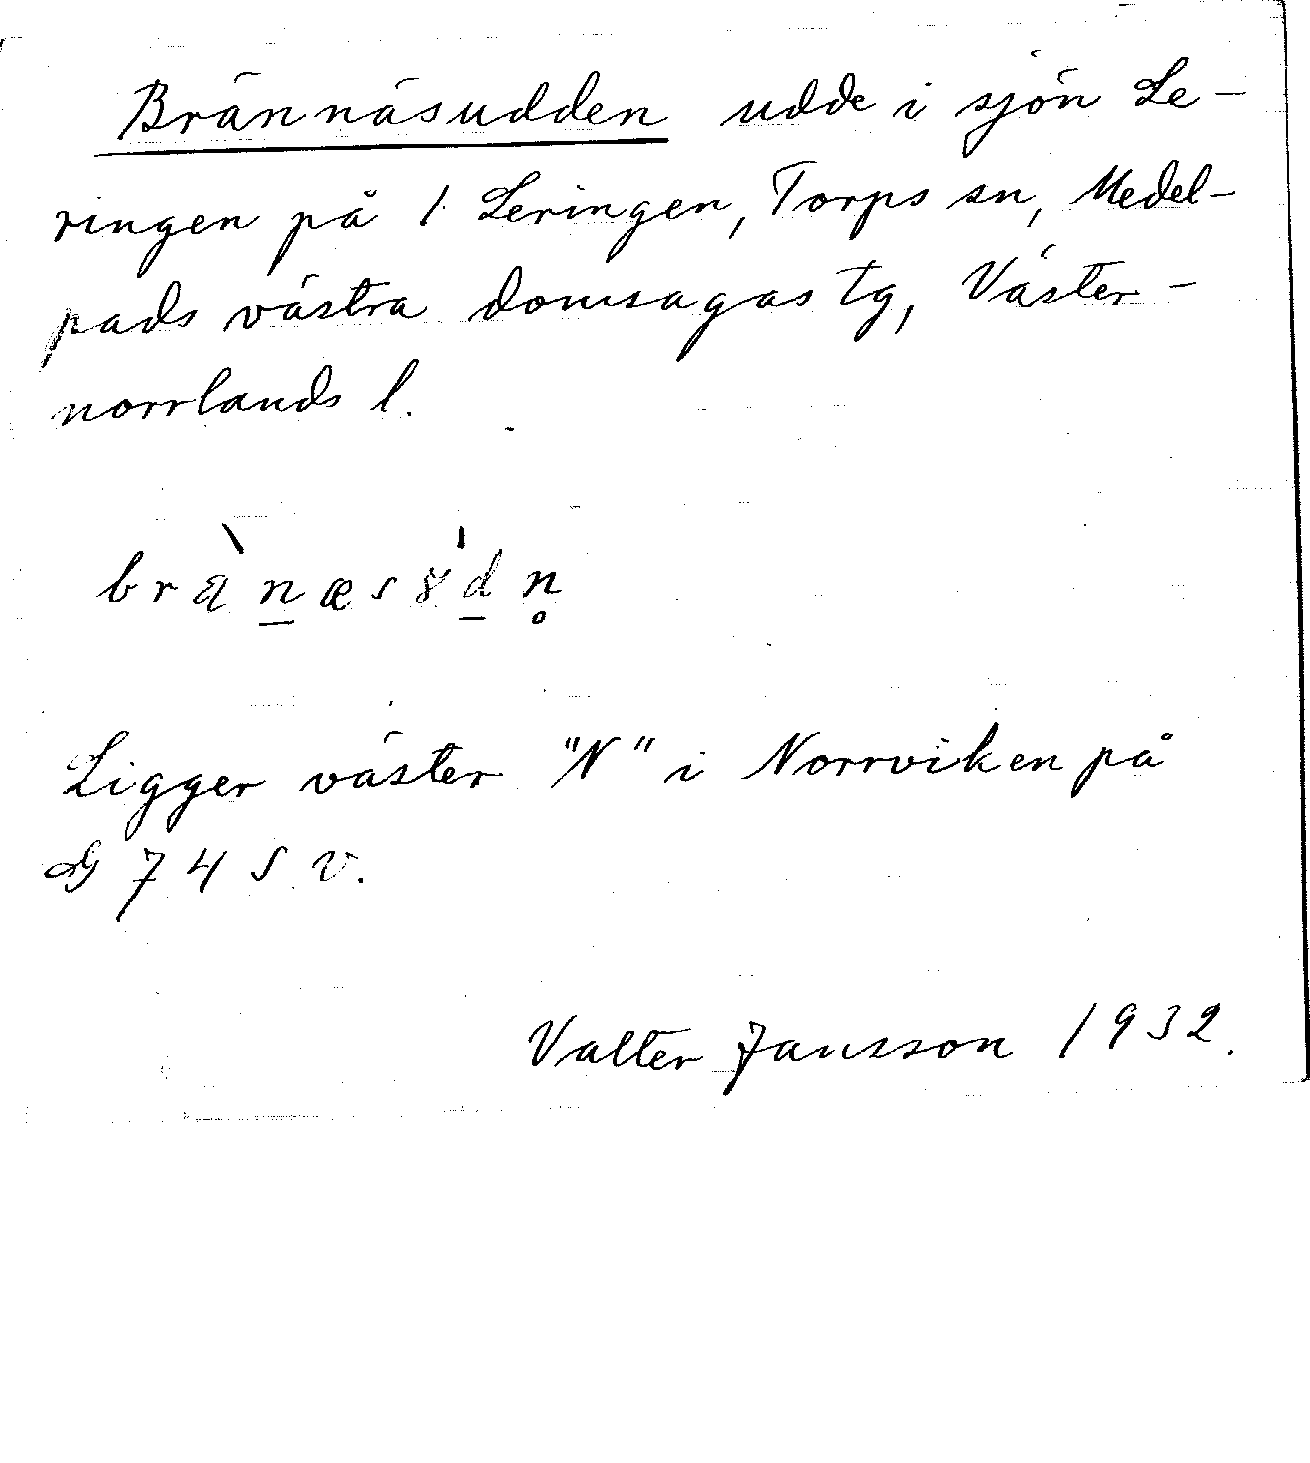 Brännäsudden udde i sjön Le-
ringen på 1 Leringen, Torps sn, Medel-
pads västra domsagas tg, Väster-
norrlands l.
Ligger väster "N" i Norrviken på
G 74 S V.
Valter Jansson 1932.